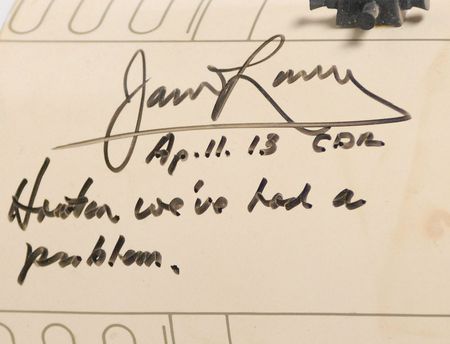 James Lovell
Ap.11. 13 CDR
Houston, we've had a
problem.